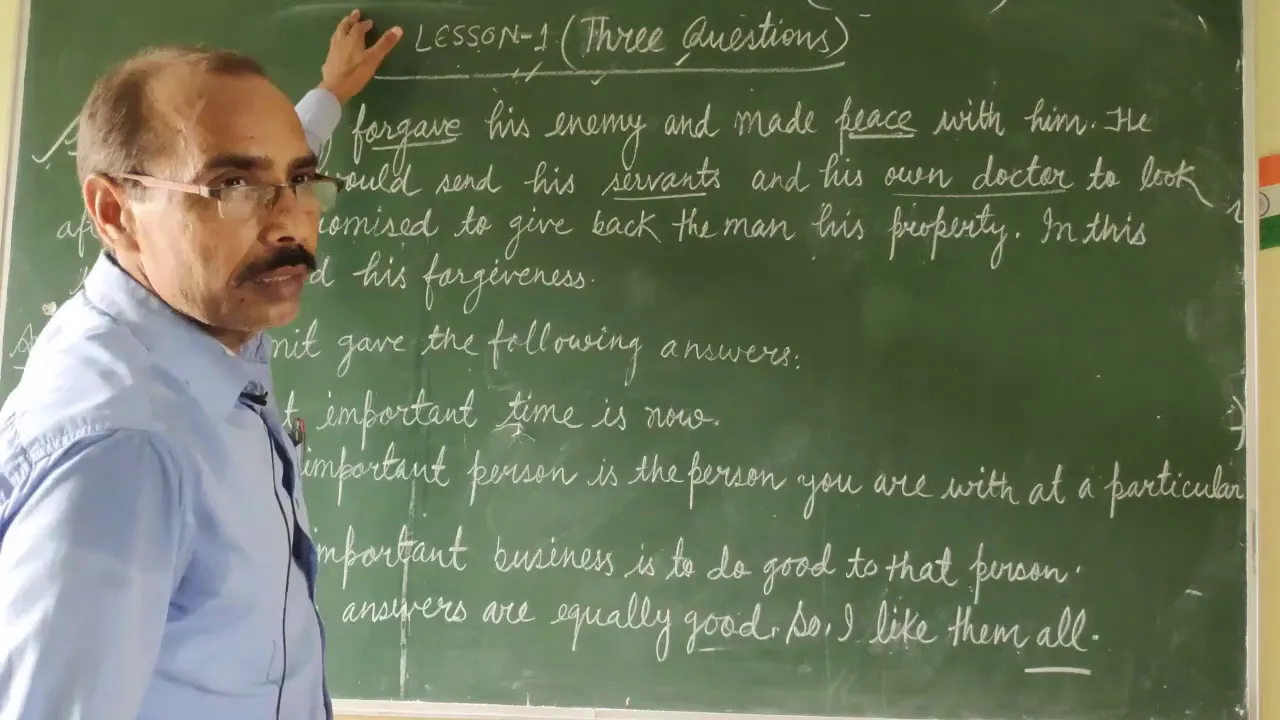 LESSON-1 (Three Questions)
forgave his enemy and made peace with him. He
would send his servants and his own doctor to look
promised to give back the man his property. In this
his forgiveness.
gave the following answers:
important time is now.
important person is the person you are with at a particular
important business is to do good to that person.
answers are equally good. So, I like them all.